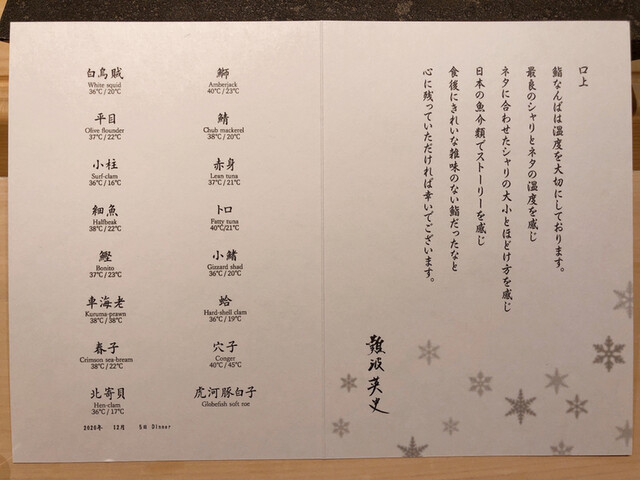 口上
鮨なんばは温度を大切にしております。
最良のシャリとネタの温度を感じ
ネタに合わせたシャリの大小とほどけ方を感じ
日本の魚介類でストーリーを感じ
食後にきれいな雑味のない鮨だったなと
心に残っていただければ幸いでございます。
難波英史
白烏賊
White squid
36℃/20℃
平目
Olive flounder
37℃/22℃
小柱
Surf-clam
36℃/16℃
細魚
Halfbeak
38℃/22℃
鰹
Bonito
37℃/23℃
車海老
Kuruma-prawn
38℃/38℃
春子
Crimson sea-bream
38℃/22℃
北寄貝
Hen-clam
36℃/17℃
鰤
Amberjack
40℃/23℃
鯖
Chub mackerel
38℃/20℃
赤身
Lean tuna
37℃/21℃
トロ
Fatty tuna
40℃/21℃
小鰭
Gizzard shad
36℃/20℃
蛤
Hard-shell clam
36℃/19℃
穴子
Conger
40℃/45℃
虎河豚白子
Globefish soft roe
2020年 12月 5日 Dinner